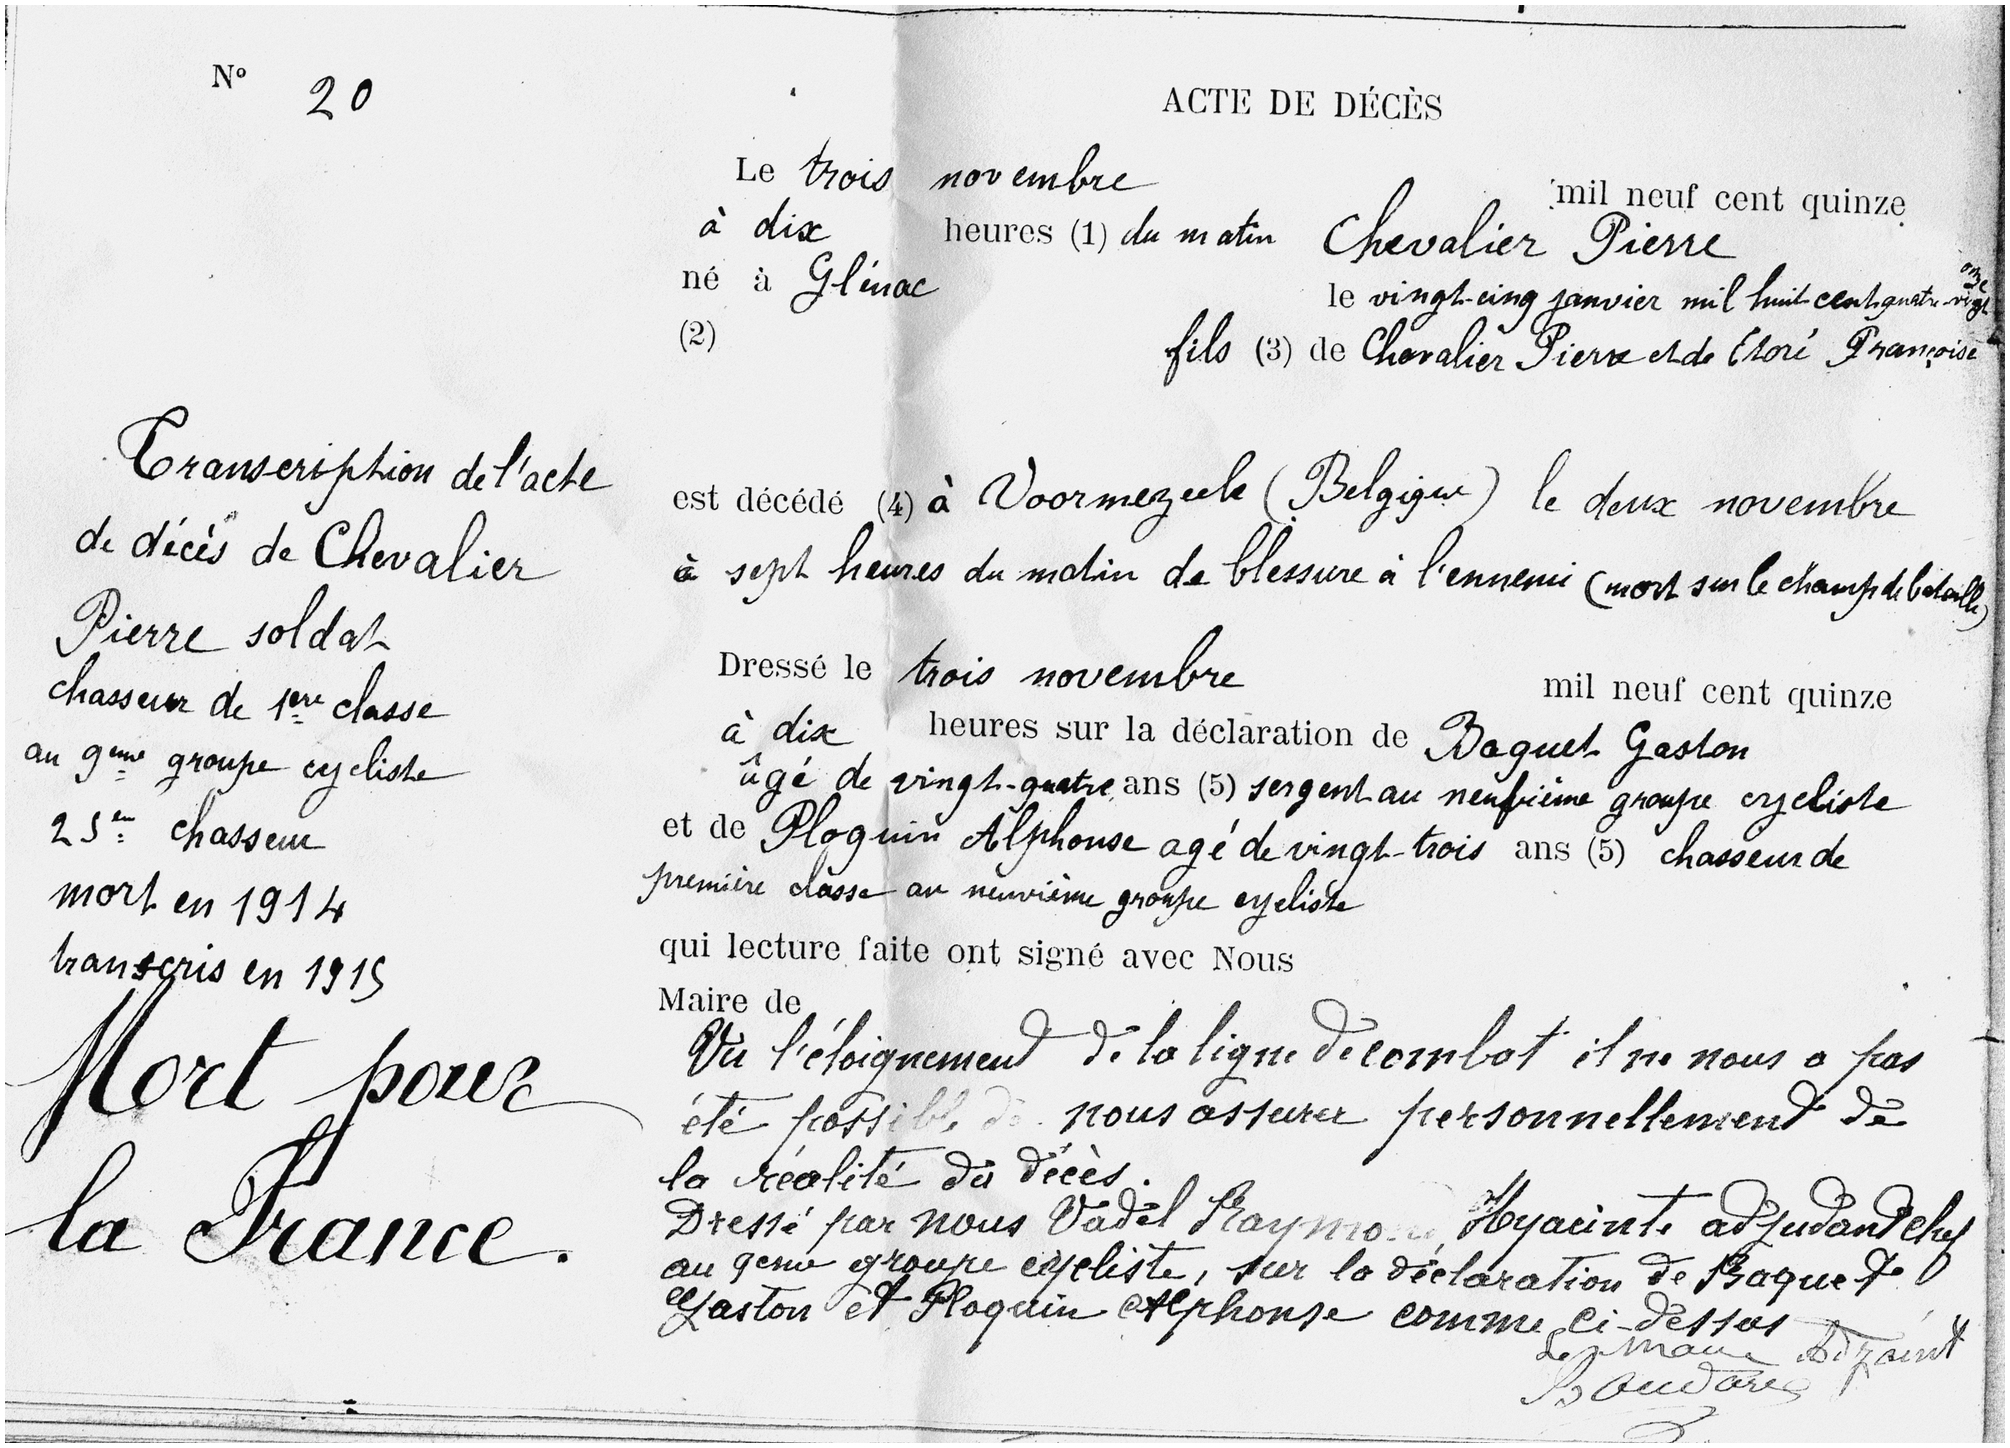 N° 20
Transcription de l'acte
de décès de Chevalier
Pierre soldat
chasseur de 1ère classe
au 9eme groupe cycliste
25em chasseur
mort en 1914
transcris en 1915
Mort pour
la France.
ACTE DE DÉCÈS
Le trois novembre mil neuf cent quinze
à dix heures (1) du matin Chevalier Pierre
né à Glénac le vingt-cinq janvier mil huit cent quatre-vingt onze
(2) fils (3) de Chevalier Pierre et de Françoise
est décédé (4) à Voormezeele (Belgique) le deux novembre
à sept heures du matin de blessure à l'ennemi (mort sur le champ de bataille)
Dressé le trois novembre mil neuf cent quinze
à dix heures sur la déclaration de Baquet Gaston
âgé de vingt-quatre ans (5) sergent au neuvième groupe cycliste
et de Ploquin Alphonse agé de vingt-trois ans (5) chasseur de
première classe au neuvième groupe cycliste
qui lecture faite ont signé avec Nous
Maire de
Vu l'éloignement de la ligne de combat il ne nous a pas
été possible de nous assurer personnellement de
la réalité du décès.
Dressé par nous Vadel Raymond Hyacinte adjudant chef
au 9eme groupe cycliste, sur la déclaration de Baquet
Gaston et Ploquin Alphonse comme ci-dessus
Le maire Adjoint